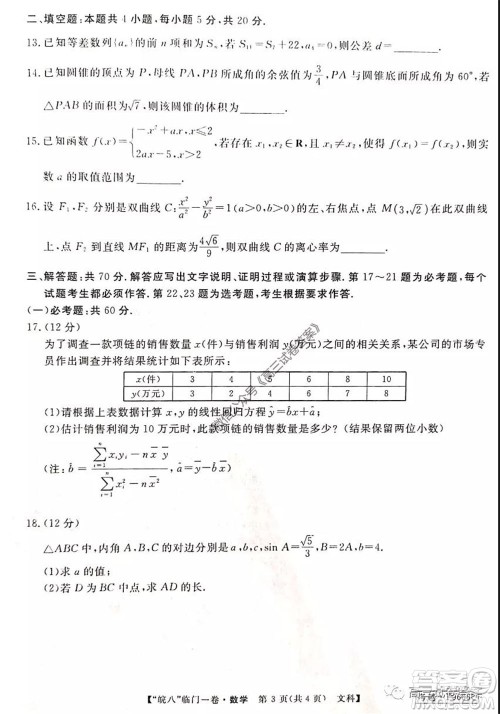 二、填空题:本题共 4 小题,每小题 5 分,共 20 分.
13.已知等差数列{aₙ}的前 n 项和为 Sₙ,若 S₁₁=S₇+22,a₃=0,则公差 d=______.
14.已知圆锥的顶点为 P,母线 PA、PB 所成角的余弦值为 3/4,PA 与圆锥底面所成角为 60°,若
△PAB 的面积为√7,则该圆锥的体积为______.
15.已知函数 f(x)={-x²+ax,x≤2 2ax-5,x>2},若存在 x₁,x₂∈R,且 x₁≠x₂,使得 f(x₁)=f(x₂),则实
数 a 的取值范围为______.
16.设 F₁,F₂ 分别是双曲线 C:x²/a²-y²/b²=1(a>0,b>0)的左、右焦点,点 M(3,√2)在此双曲线
上,点 F₂ 到直线 MF₁ 的距离为 4√6/9,则双曲线 C 的离心率为______.
三、解答题:共 70 分.解答应写出文字说明、证明过程或演算步骤.第 17~21 题为必考题,每个
试题考生都必须作答.第 22、23 题为选考题,考生根据要求作答.
(一)必考题:共 60 分.
17.(12 分)
为了调查一款项链的销售数量 x(件)与销售利润 y(万元)之间的相关关系,某公司的市场专
员作出调查并将结果统计如下表所示:
x(件) 3 4 5 6 7 8 9
y(万元) 3 2 4 4 6 7 9
(1)请根据上表数据计算 x,y 的线性回归方程 ŷ=b̂x+â;
(2)估计销售利润为 10 万元时,此款项链的销售数量是多少?(结果保留两位小数)
(注:b̂=(∑ᵢ₌₁ⁿ xᵢyᵢ-n x̄ ȳ)/(∑ᵢ₌₁ⁿ xᵢ²-n x̄²),â=ȳ-b̂x̄)
18.(12 分)
△ABC 中,内角 A,B,C 的对边分别是 a,b,c,sin A=√5/3,B=2A,b=4.
(1)求 a 的值;
(2)若 D 为 BC 中点,求 AD 的长.
微信公众号《高三试卷答案》
【“皖八”临门一卷·数学 第 3 页(共 4 页) 文科】